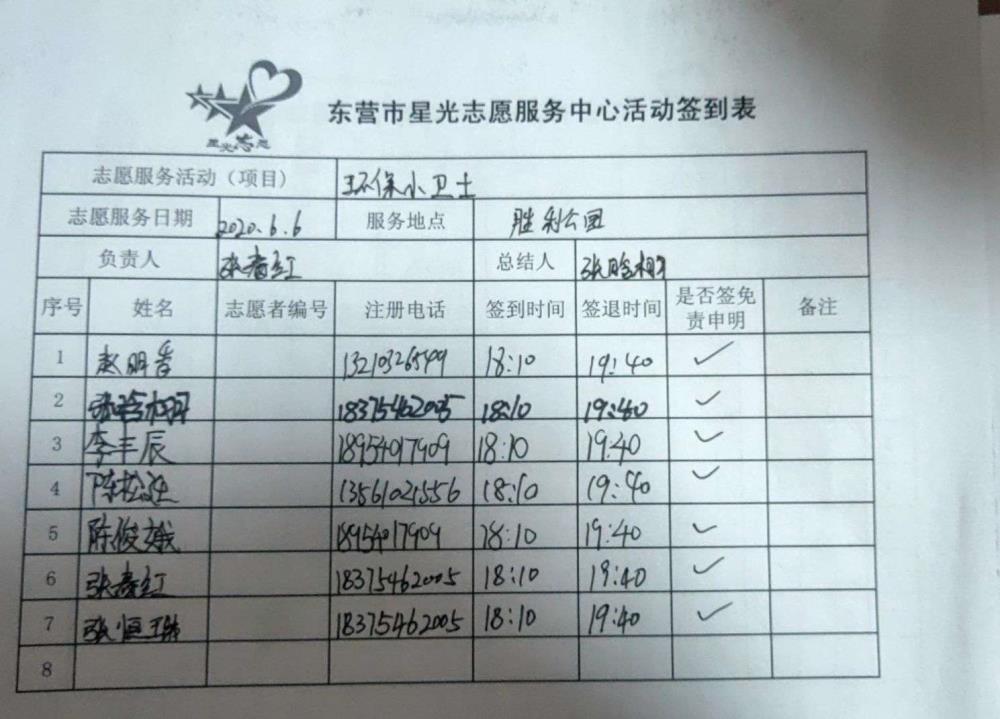 星光志愿
东营市星光志愿服务中心活动签到表
志愿服务活动（项目） 环保小卫士
志愿服务日期 2020.6.6 服务地点 胜利公园
负责人 张春红 总结人 张晗栩
序号 姓名 志愿者编号 注册电话 签到时间 签退时间 是否签免责申明 备注
1 赵明香 18:10 19:40 ✓
2 18375462005 18:10 19:40 ✓
3 李丰辰 18954017909 18:10 19:40 ✓
4 18:10 19:40 ✓
5 陈俊娥 18954017909 18:10 19:40 ✓
6 张春红 18375462005 18:10 19:40 ✓
7 张恒 18375462005 18:10 19:40 ✓
8